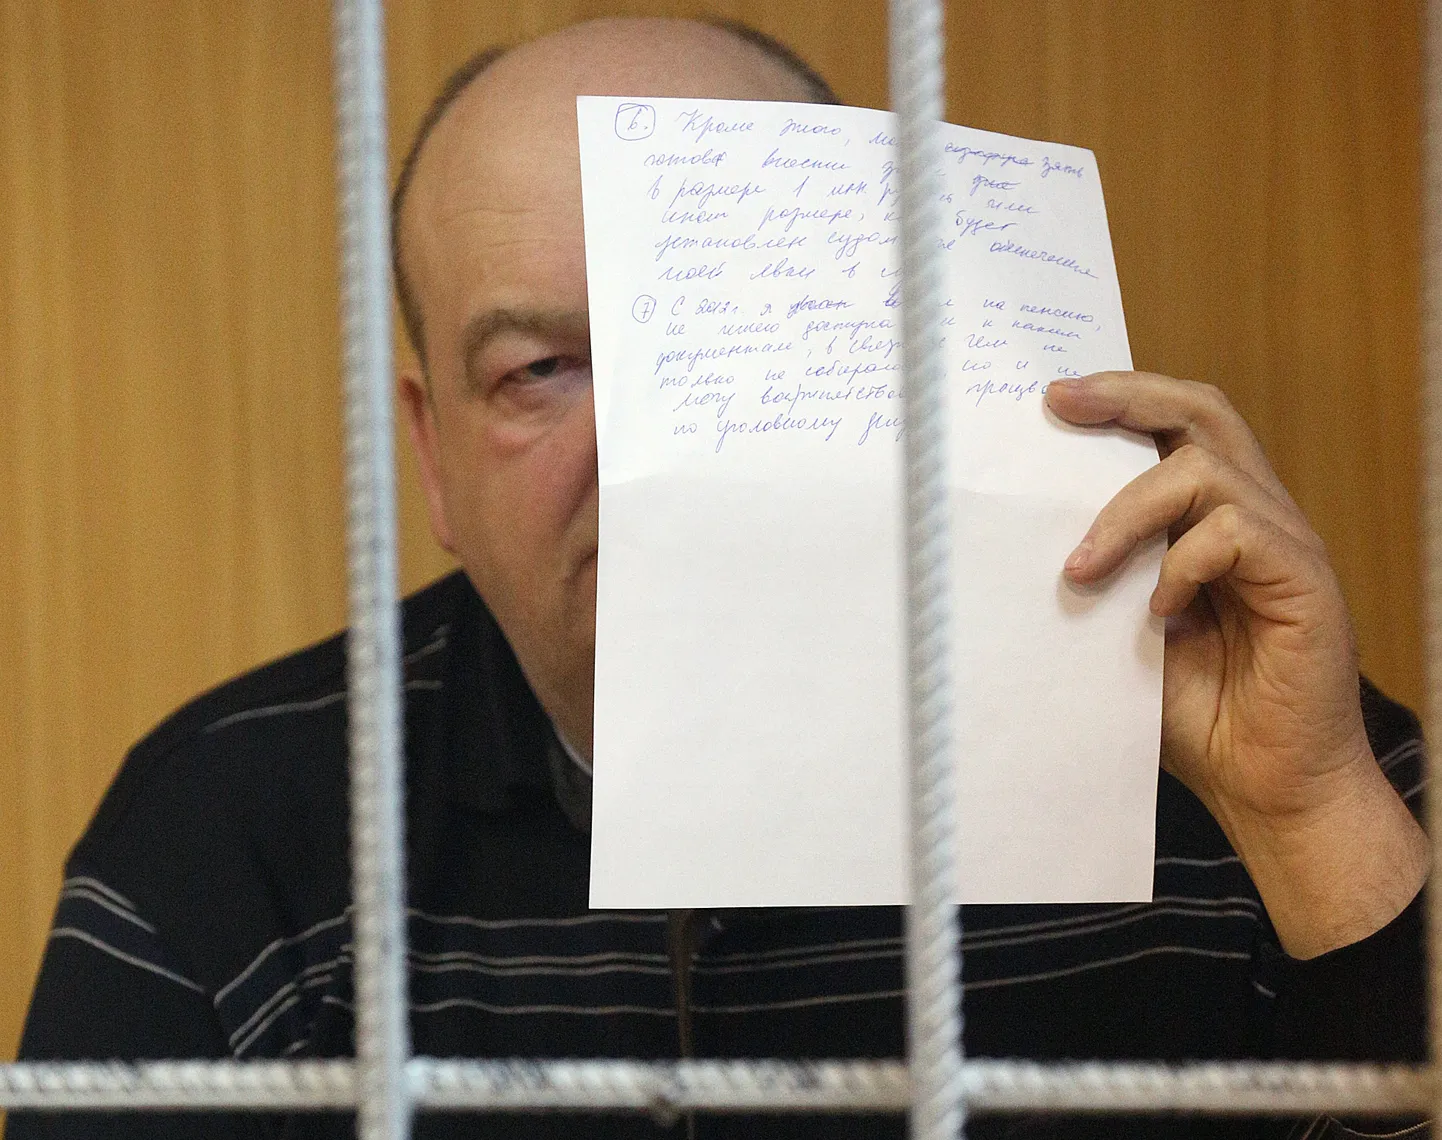 6. Кроме этого, мо зять
готов внести з
в размере 1 млн. ру или
ином размере, к будет
установлен судом обеспечения
моей явки в су
7 С 2012 г. я на пенсию,
не имею доступа и к каким
документам, в связ с чем не
только не собирал но и не
могу воспрепятствов произво
по уголовному делу